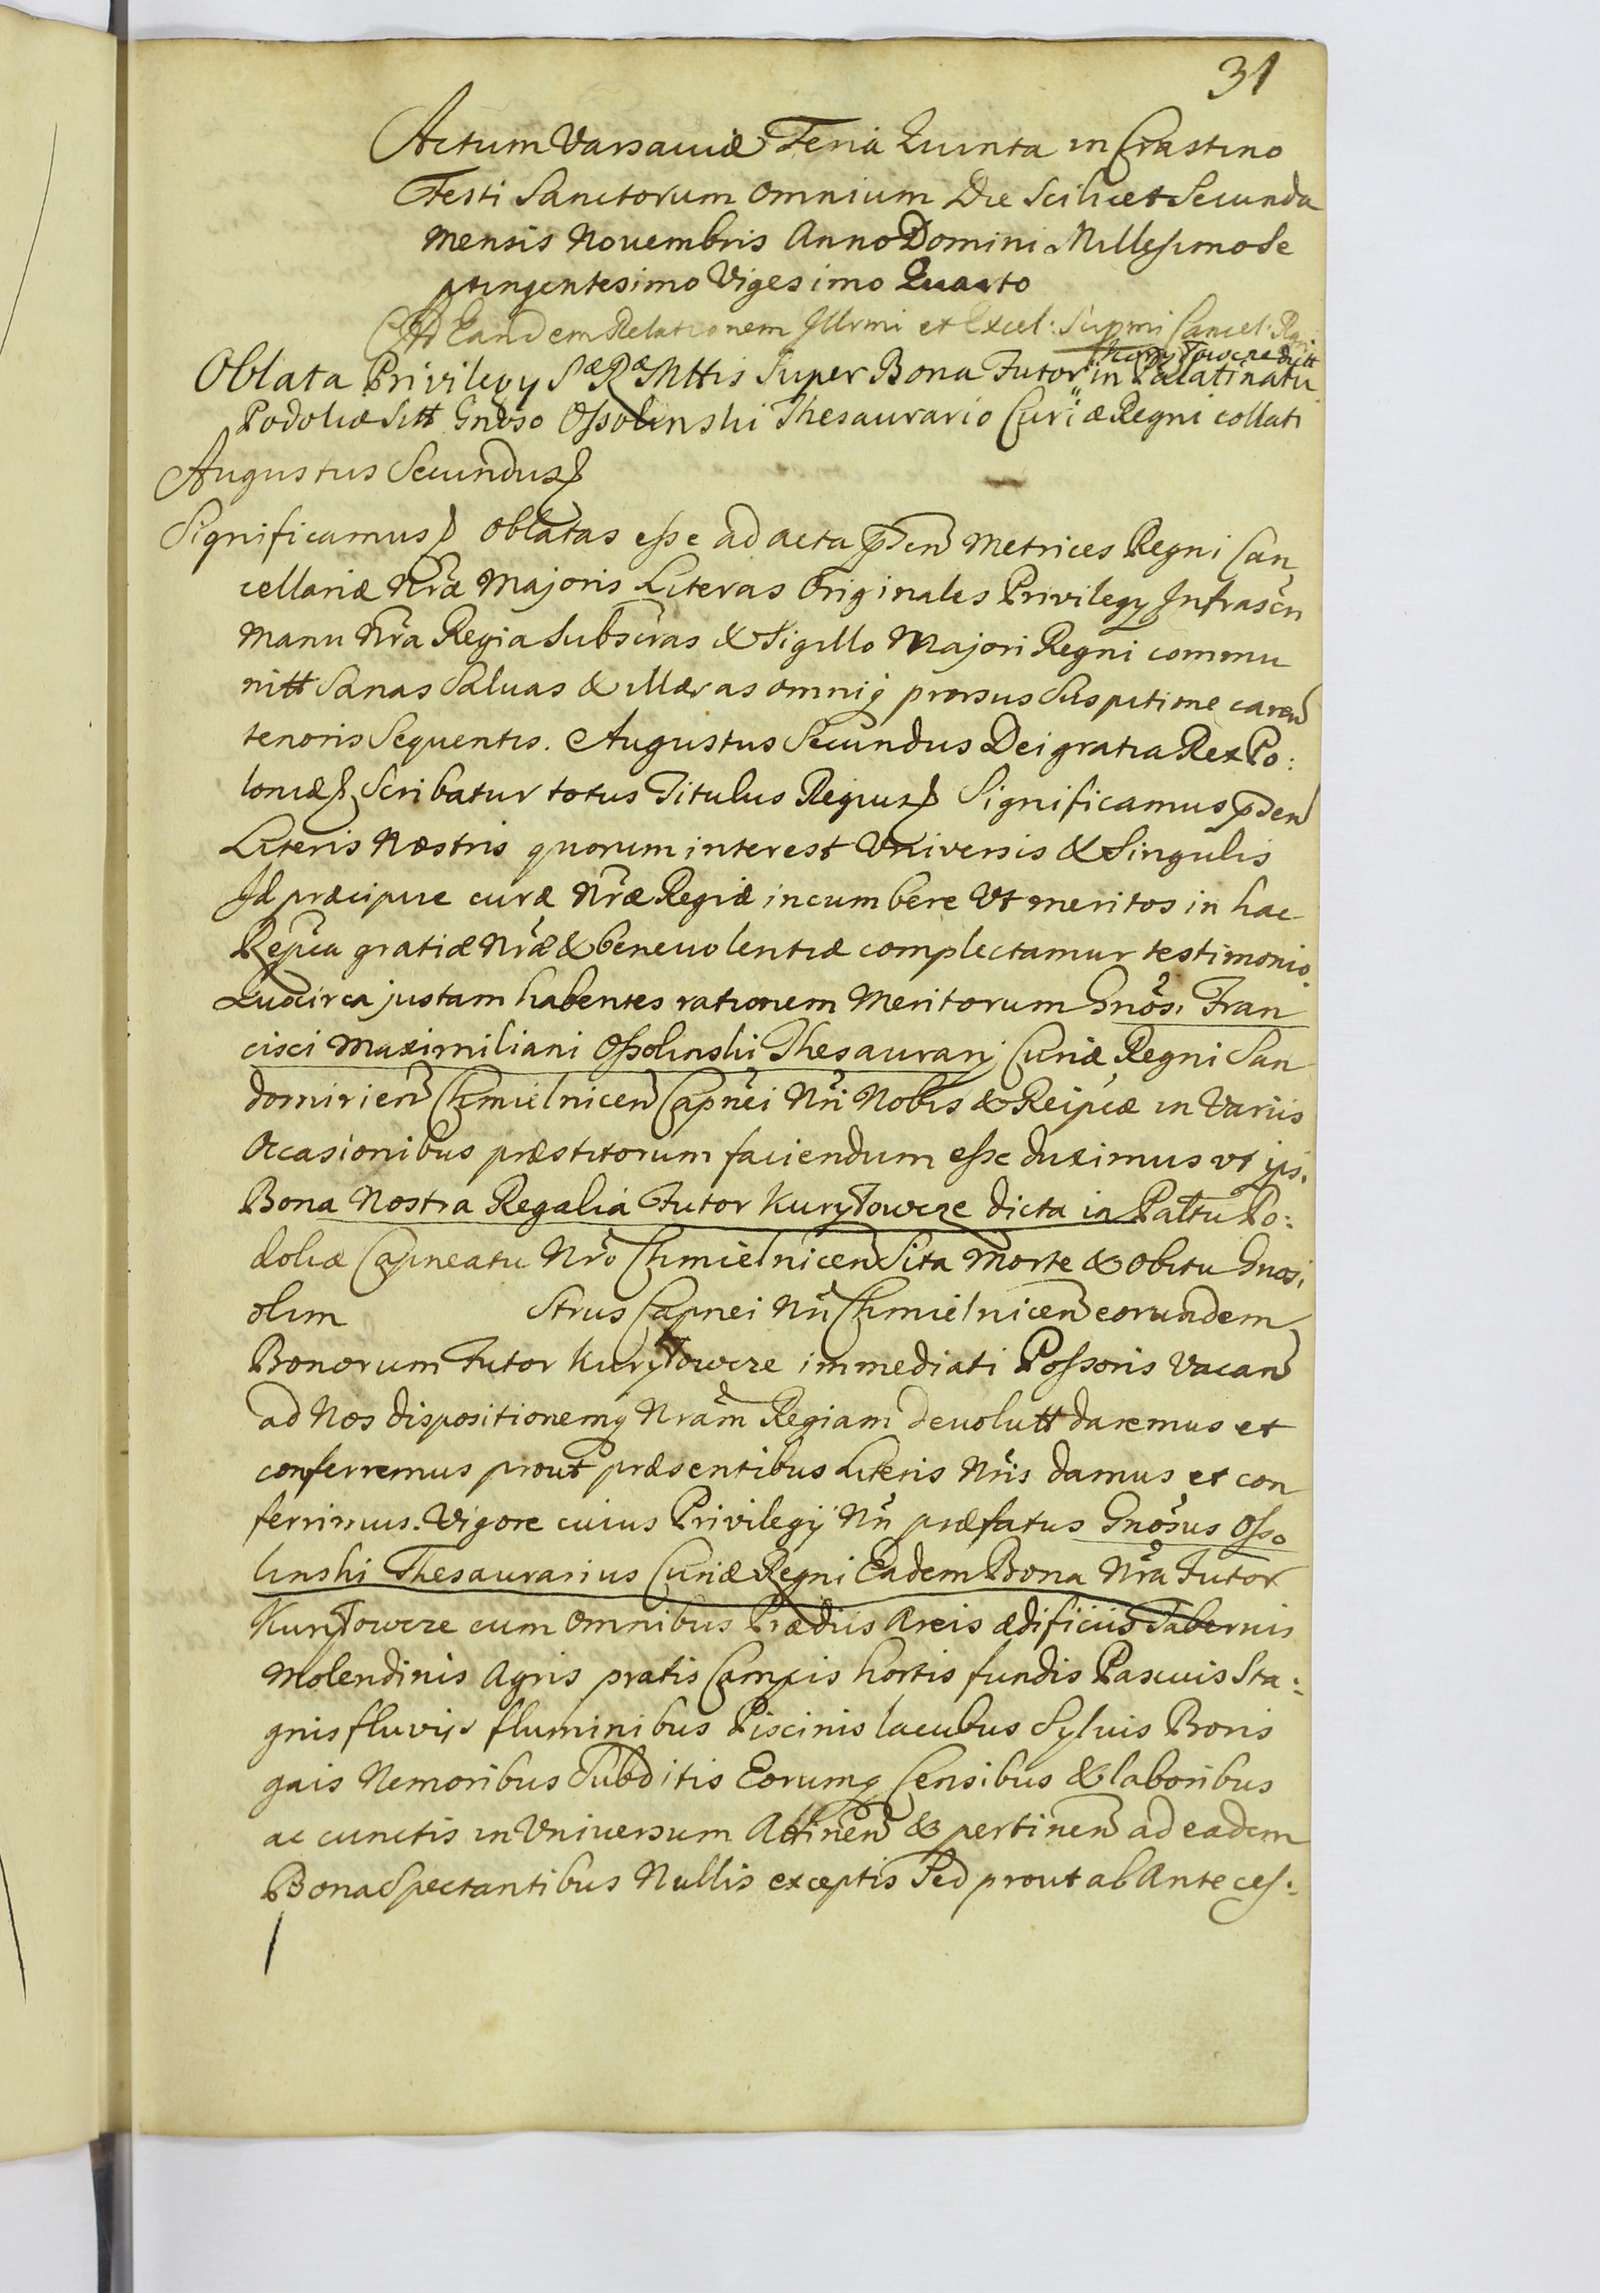 31
Actum Varsaviæ Feria Quinta in Crastino
Festi Sanctorum Omnium Die Scilicet Secunda
Mensis Novembris Anno Domini Millesimo Se
ptingentesimo Vigesimo Quarto
Ad Eandem Relationem Illrmi et Excel: Supmi Cancel: Rgni
Kuryłowcze ditt
Oblata Privilegy SæRæMttis Super Bona Futor in Palatinatu
Podoliæ Sitt Gnoso Ossolinski Thesaurario Curiæ Regni collati
Augustus Secundus
Significamus Oblatas esse ad acta pscn Metrices Regni Can
cellariæ Nræ Majoris Literas Originales Privilegy Infrascrn
Manu Nra Regia Subscras & Sigillo Majori Regni commu
nitt Sanas Salvas & illæsas omniq prorsus Suspitione caren
tenoris Sequentis. Augustus Secundus Dei gratia Rex Po:
loniæ Scribatur totus Titulus Regius Significamus psen
Literis Nostris quorum interest Vniversis & Singulis
Id præcipue curæ Nræ Regiæ incumbere Vt meritos in hac
Repca gratiæ Nræ & benevolentiæ complectamur testimonio.
Quocirca justam habentes rationem Meritorum Gnosi Fran
cisci Maximiliani Ossolinski Thesaurarij Curiæ Regni San
domirien Chmielnicen Capnei Nri Nobis & Reipcæ in Variis
Occasionibus præstitorum faciendum esse duximus vt ipsi
Bona Nostra Regalia Futor Kuryłowcze dicta in Pałtu Po:
doliæ Capneatu Nro Chmielnicen Sita Morte & Obitu Gnosi
olim Strus Capnei Nri Chmielnicen eorundem
Bonorum Futor Kuryłowcze immediati Possoris Vacan
ad Nos dispositionemq Nram Regiam devolutt daremus et
conferremus prout præsentibus Literis Nris damus et con
ferrimus. Vigore cuius Privilegij Nri præfatus Gnosus Osso
linski Thesaurarius Curiæ Regni Eadem Bona Nra Futor
Kuryłowcze cum Omnibus Prædiis Areis ædificiis Tabernis
Molendinis Agris pratis Campis hortis fundis Pascuis Sta:
gnis fluvijs fluminibus Piscinis lacubus Sylvis Boris
gais Nemoribus Subditis Eorumq Censibus & laboribus
ac cunctis in Vniversum Attinen & pertinen ad eadem
Bona Spectantibus Nullis exceptis Sed prout ab Anteces: